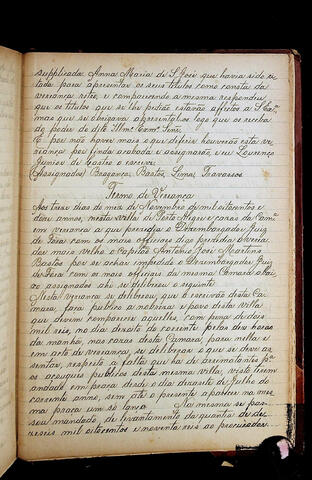 supplicada Anna Maria de S. José que havia sido ci-
tada para apresentar os seus titulos como consta da
veriança retro, e comparecendo a mesma respondeu
que os titulos que se lhe pidião estavão affectos a S. Exª
mas que se obrigava apresental-os logo que os receba
do poder do dito Illmº Exmº Senr.
E por não haver mais o que deferir houverão esta ve-
riança por finda acabada e assignarão, eu Lourenço
Junior de Castro o escrevi
(Assignados) Bragança, Bastos, Lima, Travassos
Termo de Veriança
Aos tres dias do mez de Novembro de mil oitocentos e
doze annos, nesta villa de Porto Alegre e casas da Camª
em veriança a que presidia o Desembargador Juiz
de Fora com os mais officiaes digo presidia o veria-
dor mais velho o Capitão Antonio José Martins
Bastos por se achar impedido o Desembargador Juiz
de Fora com os mais officiaes da mesma Camara abai-
xo assignados ahi se deliberou o seguinte
Nesta veriança se deliberou, que o escrivão desta Ca-
mara, fara publico a nobreza e povo desta villa
que devem comparecer aquelles, com pena de dous
mil reis, no dia desoito do corrente pelas dez horas
da manhã, nas casas desta Camara, para nella e
em acto de veriança, se deliberar o que se deve as-
sentar, respeito a falta que ha de arrematantes pª
os açougues publicos desta mesma villa, visto terem
andado em praça desde o dia de Julho do
corrente anno, sem até o presente apparecer na mes-
ma praça um só lanço. Na mesma se pas-
sou mandado, de levantamento da quantia de dez-
eseis mil oitocentos e noventa reis ao procurador